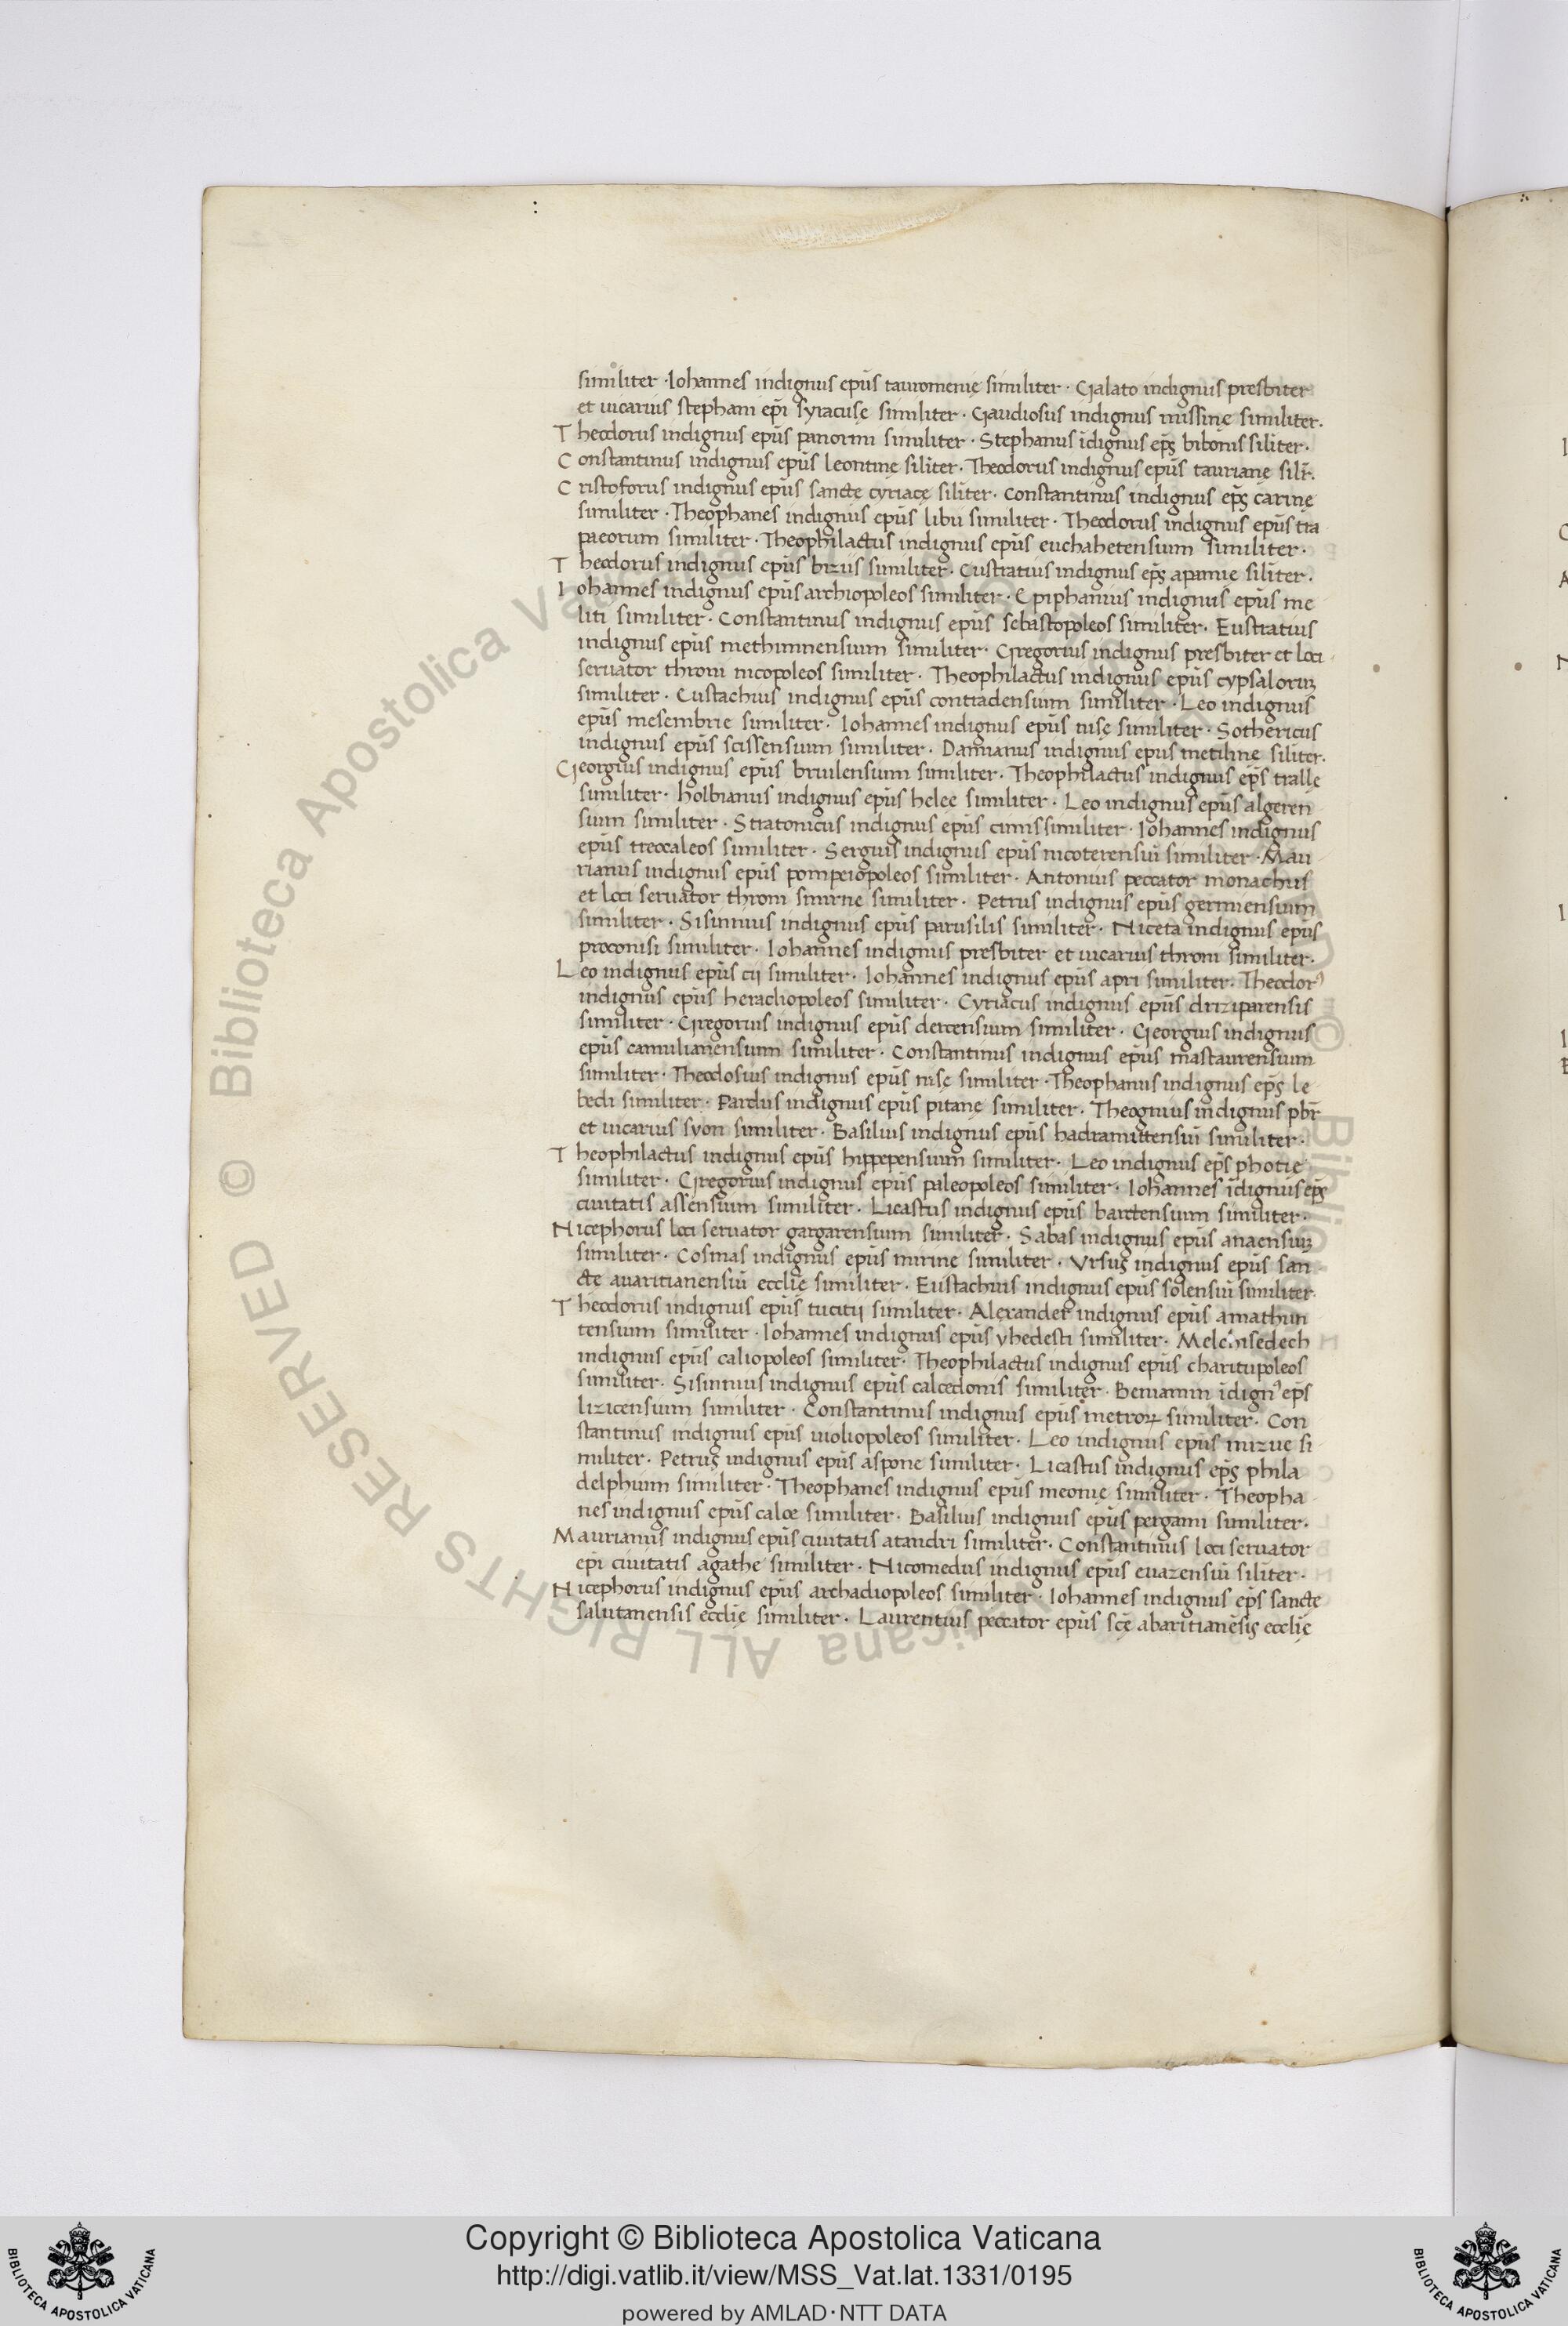 similiter · Iohannes indignus ep̄us tauromenię similiter · Galato indignus presbiter
et uicarius stephani ep̄i syracusę similiter · Gaudiosus indignus missinę similiter.
Theodorus indignus ep̄us panormi similiter · Stephanus īdignus ep̄s bibonis siliter ·
Constantinus indignus ep̄us leontinę siliter · Theodorus indignus ep̄us taurianę silr̄.
Cristoforus indignus ep̄us sanctę cyriacę siliter · Constantinus indignus ep̄s carinę
similiter · Theophanes indignus ep̄us libii similiter · Theodorus indignus ep̄us tra
paeorum similiter · Theophilactus indignus ep̄us euchahetensium similiter ·
Theodorus indignus ep̄us bizus similiter · Eustratius indignus ep̄s apamie siliter ·
Iohannes indignus ep̄us archiopoleos similiter · Epiphanius indignus ep̄us me
liti similiter · Constantinus indignus ep̄us sebastopoleos similiter · Eustratius
indignus ep̄us methimnensium similiter · Gregorius indignus presbiter et loci
seruator throni nicopoleos similiter · Theophilactus indignus ep̄us cypsalorum
similiter · Eustachius indignus ep̄us contradensium similiter · Leo indignus
ep̄us mesembrie similiter · Iohannes indignus ep̄us nisę similiter · Sothericus
indignus ep̄us scissensium similiter · Damianus indignus ep̄us metihnę siliter.
Georgius indignus ep̄us briulensium similiter · Theophilactus indignus ep̄s trallę
similiter · holbianus indignus ep̄us helee similiter · Leo indignus ep̄us algeren
sium similiter · Stratonicus indignus ep̄us cimissimiliter · Iohannes indignus
ep̄us treccaleos similiter · Sergius indignus ep̄us nicoterensiū similiter · Mau
rianus indignus ep̄us pompeiopoleos similiter · Antonius peccator monachus
et loci seruator throni smirnę similiter · Petrus indignus ep̄us germiensium
similiter · Sisinnius indignus ep̄us parusilis similiter · Niceta indignus ep̄us
proconisi similiter · Iohannes indignus presbiter et uicarius throni similiter.
Leo indignus ep̄us cij similiter · Iohannes indignus ep̄us apri similiter. Theodorꝰ
indignus ep̄us heracliopoleos similiter · Cyriacus indignus ep̄us driziparensis
similiter · Gregorius indignus ep̄us dercensium similiter · Georgius indignus
ep̄us camulianensium similiter · Constantinus indignus ep̄us mastaurensium
similiter · Theodosius indignus ep̄us nisę similiter · Theophanus indignus ep̄s le
bedi similiter · Pardus indignus ep̄us pitanę similiter. Theognius indignus pbr̄
et uicarius syon similiter · Basilius indignus ep̄us hadramittensiū similiter ·
Theophilactus indignus ep̄us hippepensium similiter · Leo indignus ep̄s photie
similiter · Gregorius indignus ep̄us paleopoleos similiter · Iohannes īdignus ep̄s
ciuitatis assensium similiter · Licastus indignus ep̄us baretensium similiter ·
Nicephorus loci seruator gargarensium similiter · Sabas indignus ep̄us anaensium
similiter · Cosmas indignus ep̄us mirinę similiter · Vrsus indignus ep̄us san
ctę auaritianensiū ecclię similiter · Eustachius indignus ep̄us solensiū similiter.
Theodorus indignus ep̄us tucitij similiter · Alexander indignus ep̄us amathun
tensium similiter · Iohannes indignus ep̄us vhedesti similiter · Melchisedech
indignus ep̄us caliopoleos similiter · Theophilactus indignus ep̄us charitupoleos
similiter · Sisinnius indignus ep̄us calcedonis similiter · Beniamin īdignꝰ ep̄s
lizicensium similiter · Constantinus indignus ep̄us metroꝝ similiter · Con
stantinus indignus ep̄us iuoliopoleos similiter · Leo indignus ep̄us mizue si
militer · Petrus indignus ep̄us asponę similiter · Licastus indignus ep̄s phila
delphum similiter · Theophanes indignus ep̄us meonię similiter · Theopha
nes indignus ep̄us caloę similiter · Basilius indignus ep̄us pergami similiter ·
Maurianus indignus ep̄us ciuitatis atandri similiter · Constantinus loci seruator
ep̄i ciuitatis agathe similiter · Nicomedus indignus ep̄us euazensiū siliter ·
Nicephorus indignus ep̄us archadiopoleos similiter · Iohannes indignus ep̄s sanctę
salutanensis ecclię similiter · Laurentius peccator ep̄us scę̄ abaritianēsis ecclię
© Biblioteca Apostolica Vaticana ALL RIGHTS RESERVED
Copyright © Biblioteca Apostolica Vaticana
http://digi.vatlib.it/view/MSS_Vat.lat.1331/0195
powered by AMLAD·NTT DATA
BIBLIOTECA APOSTOLICA VATICANA
BIBLIOTECA APOSTOLICA VATICANA